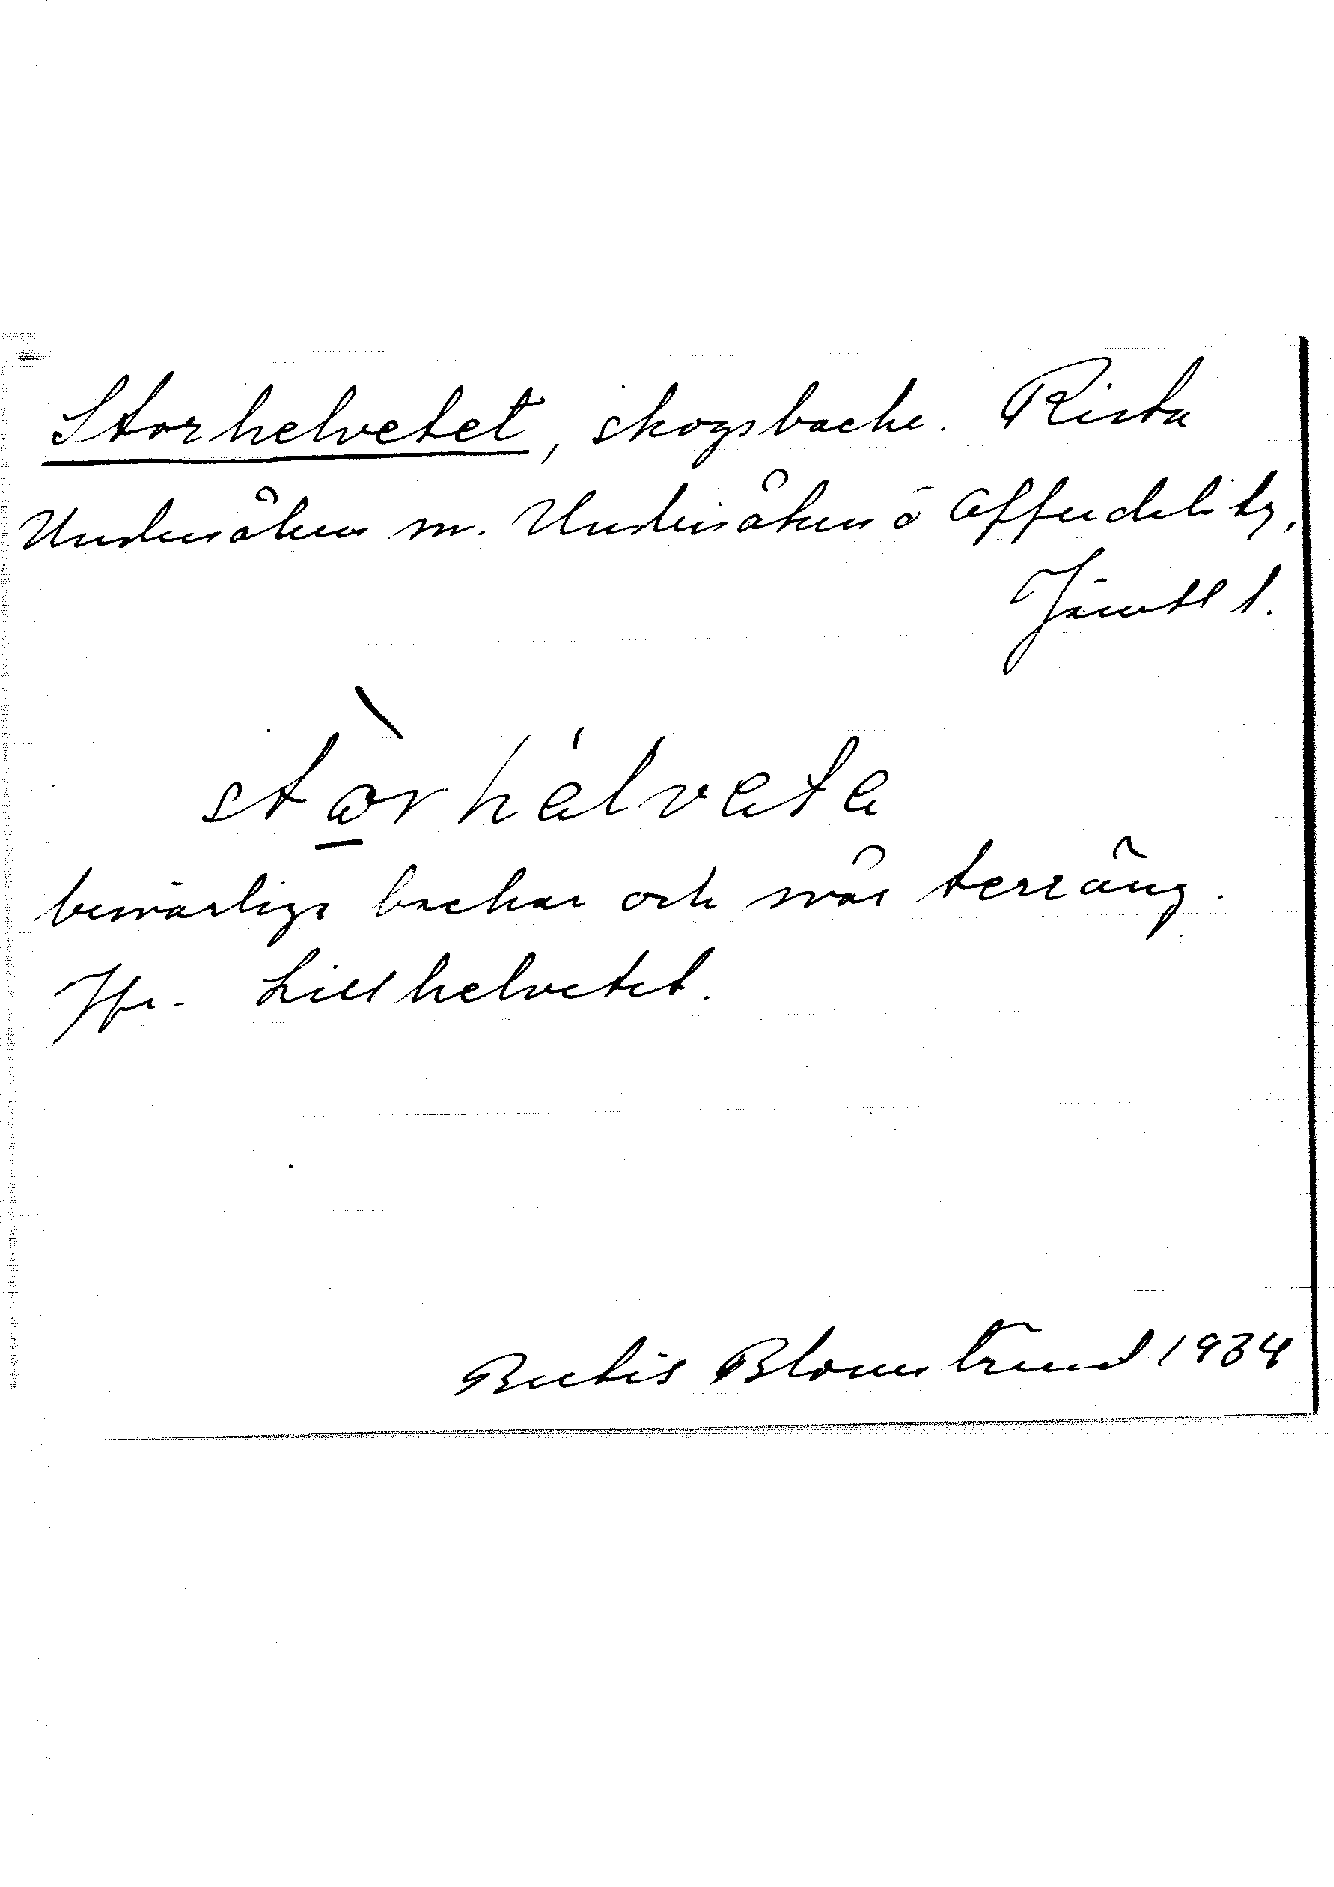 Storhelvetet, skogsbacke. Rista
Undersåkers sn. Undersåkers o Offerdals tg,
Jämtl l.
stòrhélveta
besvärliga backar och svår terräng.
Jfr. Lillhelvetet.
Bertis Blomstrand 1934